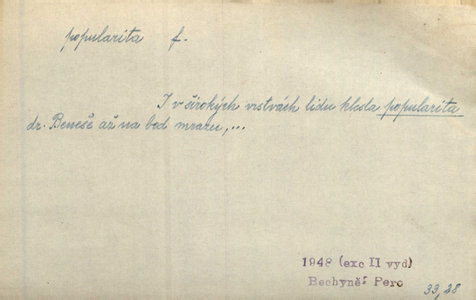 popularita f.
I v širokých vrstvách lidu klesla popularita
dr. Beneše až na bod mrazu,...
1948 (exc II vyd)
Bechyně: Pero
33,28